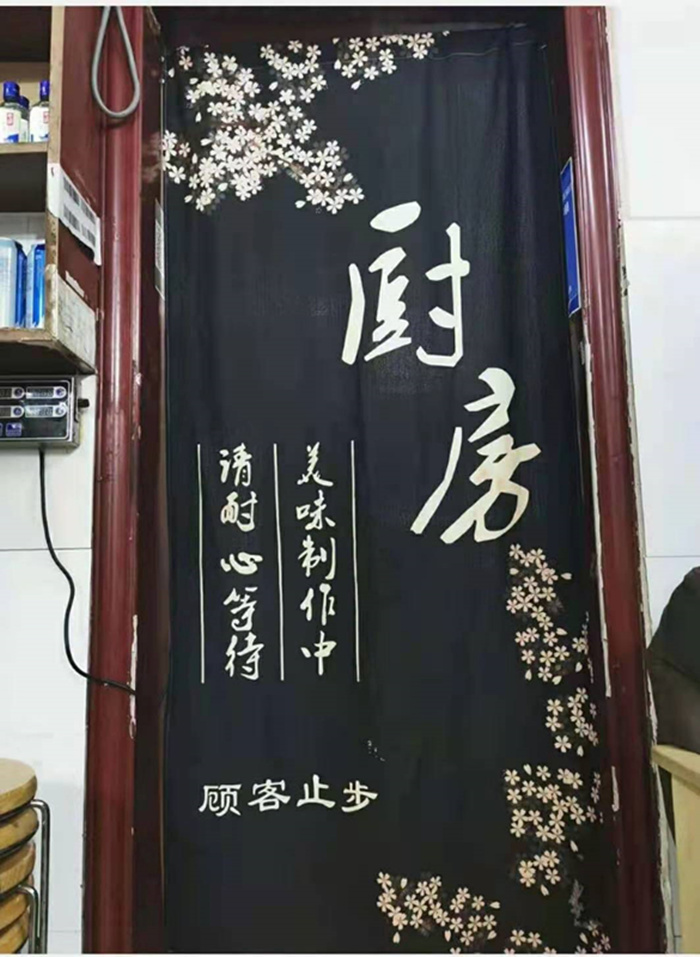 厨房
美味制作中
请耐心等待
顾客止步